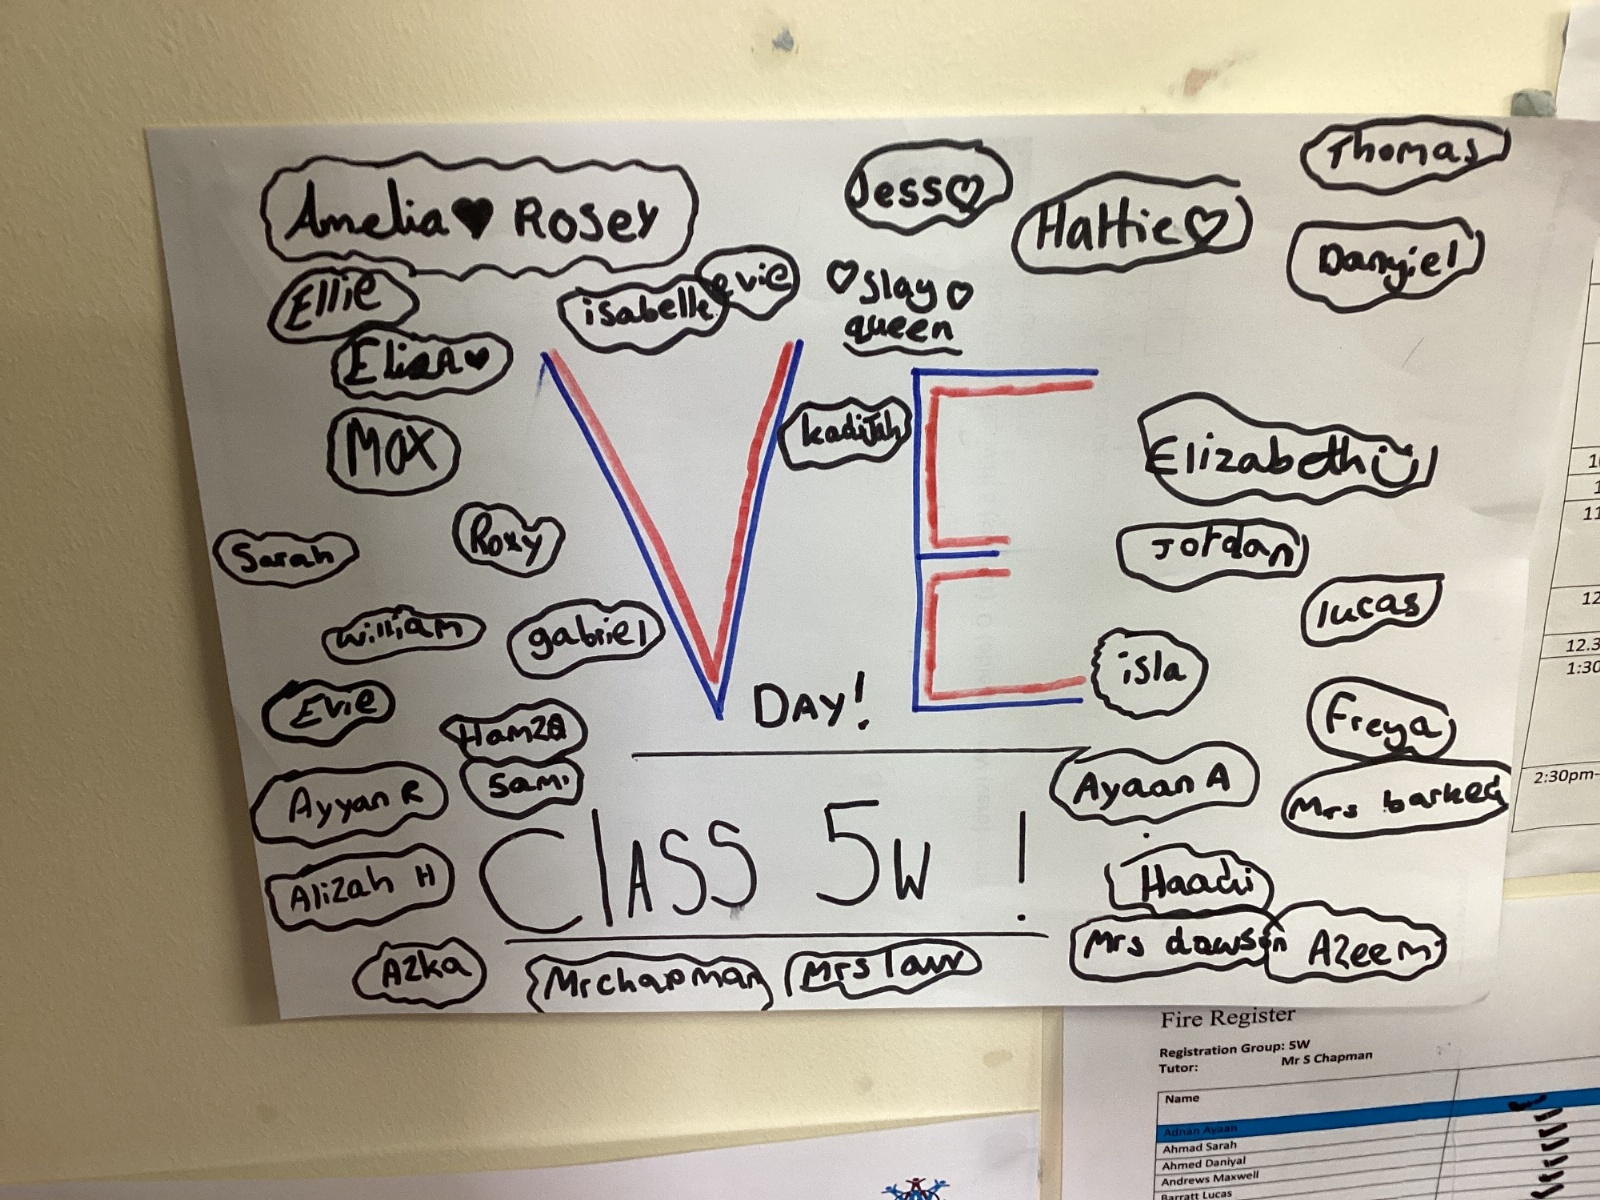 Amelia♥ Rosey
Jess♡
Hattie♡
Thomas
Danyiel
Ellie
isabelle
evie
♡slay♡
queen
Eliza♥
Max
kadijah
Elizabeth
Sarah
Roxy
Jordan
lucas
william
gabriel
isla
VE
DAY!
Evie
Hamza
Sami
Freya
Ayyan R
Ayaan A
Mrs barker
Alizah H
Class 5W !
Haadi
Azka
Mr chapman
Mrs law
Mrs dawson
Azeem
12
12.3
1:30
2:30pm-
Fire Register
Registration Group: 5W
Tutor: Mr S Chapman
Name
Adnan Ayaan
Ahmad Sarah
Ahmed Daniyal
Andrews Maxwell
Barratt Lucas